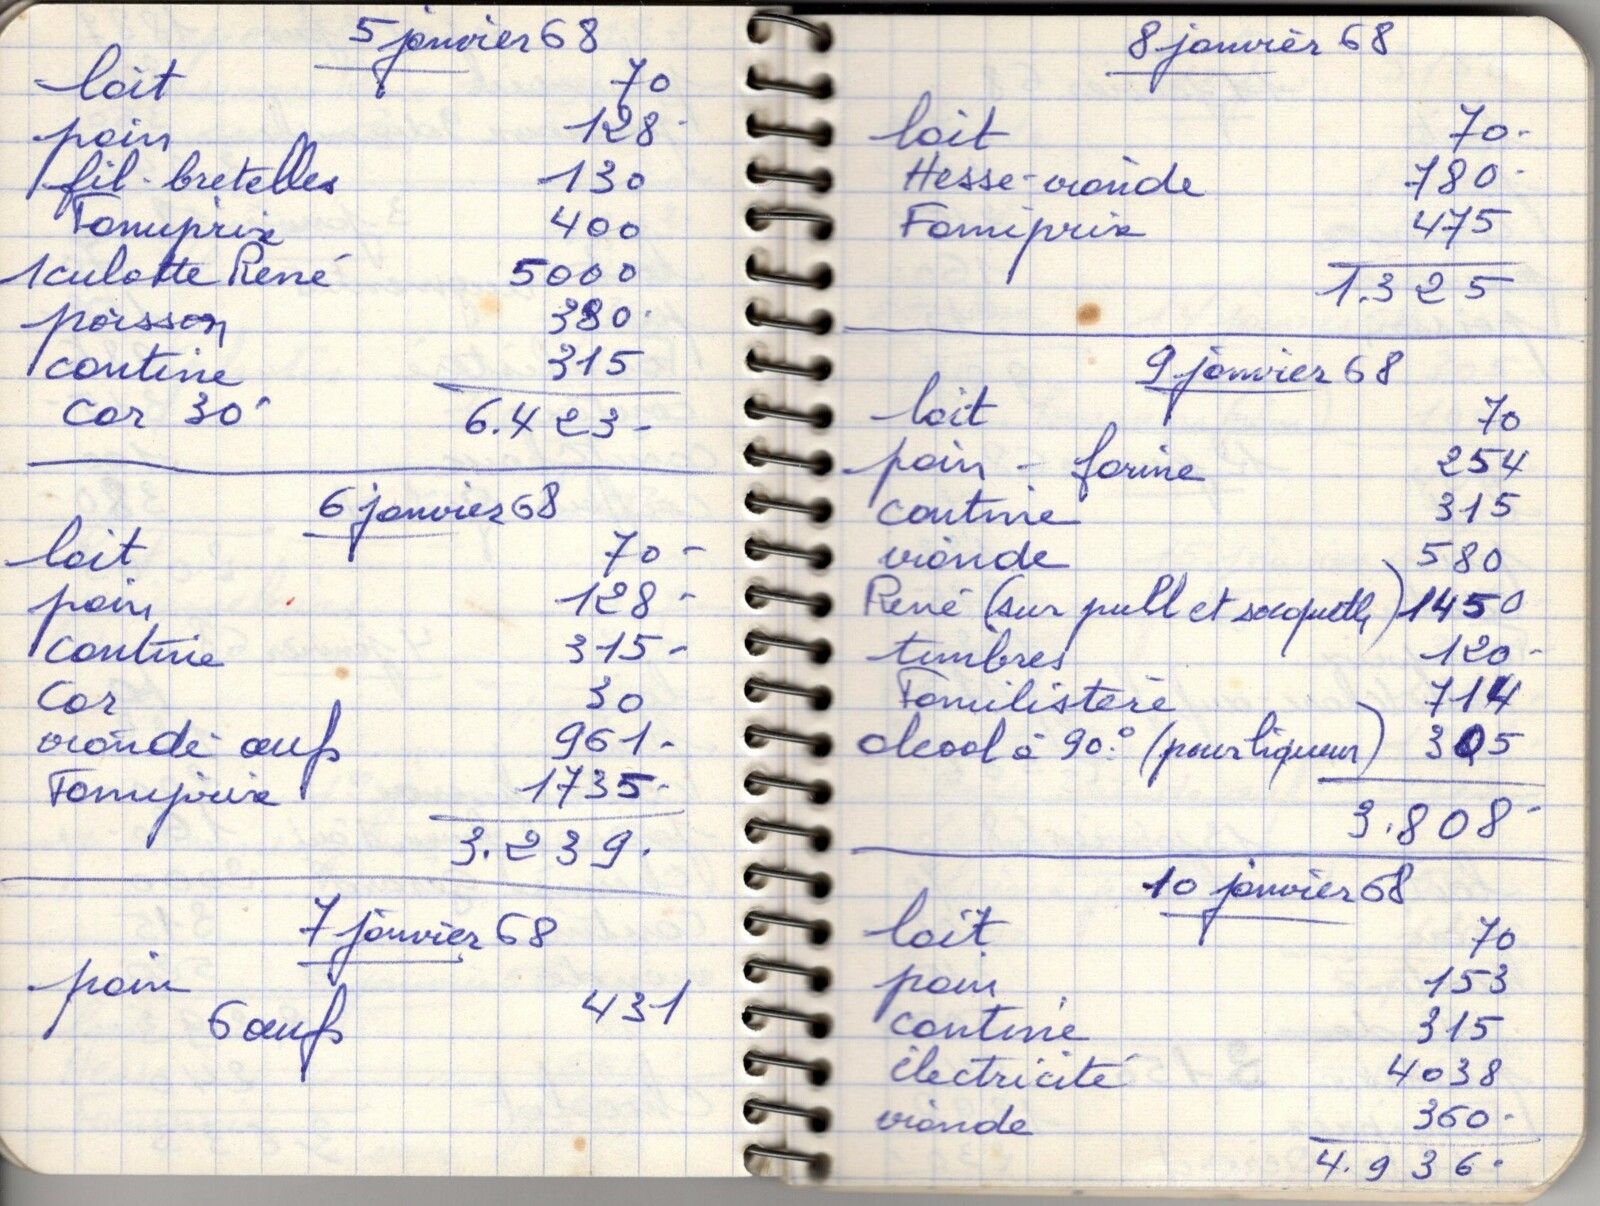 5 janvier 68
lait 70
pain 128-
fil-bretelles 130
Famiprix 400
1 culotte René 5000
poisson 380-
cantine 315
Car 30-
6.423-
6 janvier 68
lait 70-
pain 128-
cantine 315-
Car 30
viande œufs 961-
Famiprix 1735-
3.239.
7 janvier 68
pain
6 œufs 431
8 janvier 68
lait 70-
Hesse-viande 780-
Famiprix 475
1.325
9 janvier 68
lait 70
pain - farine 254
cantine 315
viande 580
René (sur pull et socquettes) 1450
timbres 120-
Familistère 714
alcool à 90° (pour liqueur) 305
3.808-
10 janvier 68
lait 70
pain 153
cantine 315
électricité 4038
viande 360-
4.936-